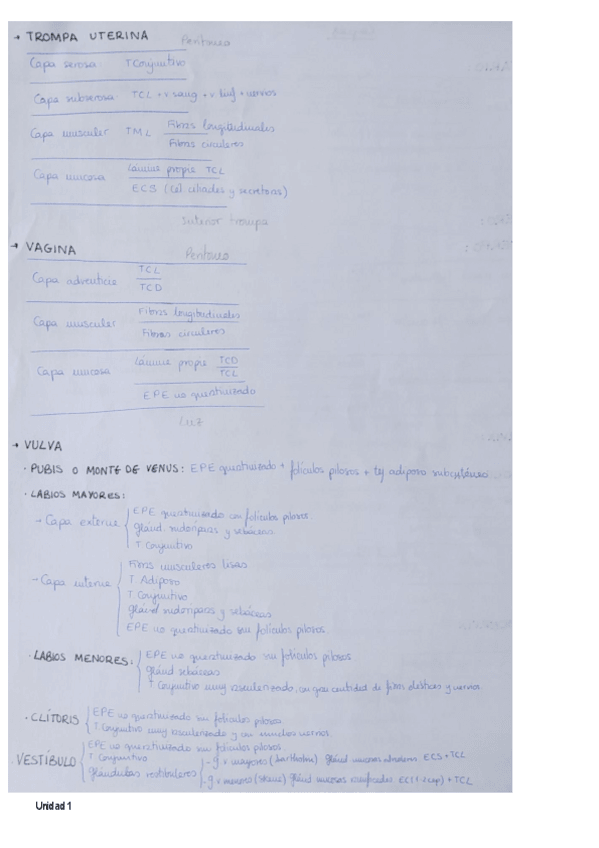 → TROMPA UTERINA Peritoneo
Capa serosa TConjuntivo
Capa subserosa TCL + v sang + v linf + nervios
Capa muscular TML Fibras longitudinales
Fibras circulares
Capa mucosa Lámina propia TCL
ECS (cel ciliadas y secretoras)
Interior trompa
→ VAGINA Peritoneo
Capa adventicia TCL
TCD
Capa muscular Fibras longitudinales
Fibras circulares
Capa mucosa Lámina propia TCD
TCL
EPE no queratinizado
Luz
→ VULVA
· PUBIS O MONTE DE VENUS: EPE queratinizado + folículos pilosos + tej adiposo subcutáneo
· LABIOS MAYORES:
→ Capa externa EPE queratinizado con folículos pilosos
gland. sudoríparas y sebáceas
T Conjuntivo
→ Capa interna Fibras musculares lisas
T Adiposo
T Conjuntivo
gland sudoríparas y sebáceas
EPE no queratinizado sin folículos pilosos.
· LABIOS MENORES: EPE no queratinizado sin folículos pilosos
gland sebáceas
T Conjuntivo muy vascularizado, con gran cantidad de fibras elásticas y nervios
· CLÍTORIS EPE no queratinizado sin folículos pilosos
T Conjuntivo muy vascularizado y con muchos nervios.
· VESTÍBULO EPE no queratinizado sin folículos pilosos.
T Conjuntivo
glándulas vestibulares - g v mayores (bartholino) gland mucosas ECS + TCL
- g v menores (skene) gland mucosas ramificadas + TCL
Unidad 1